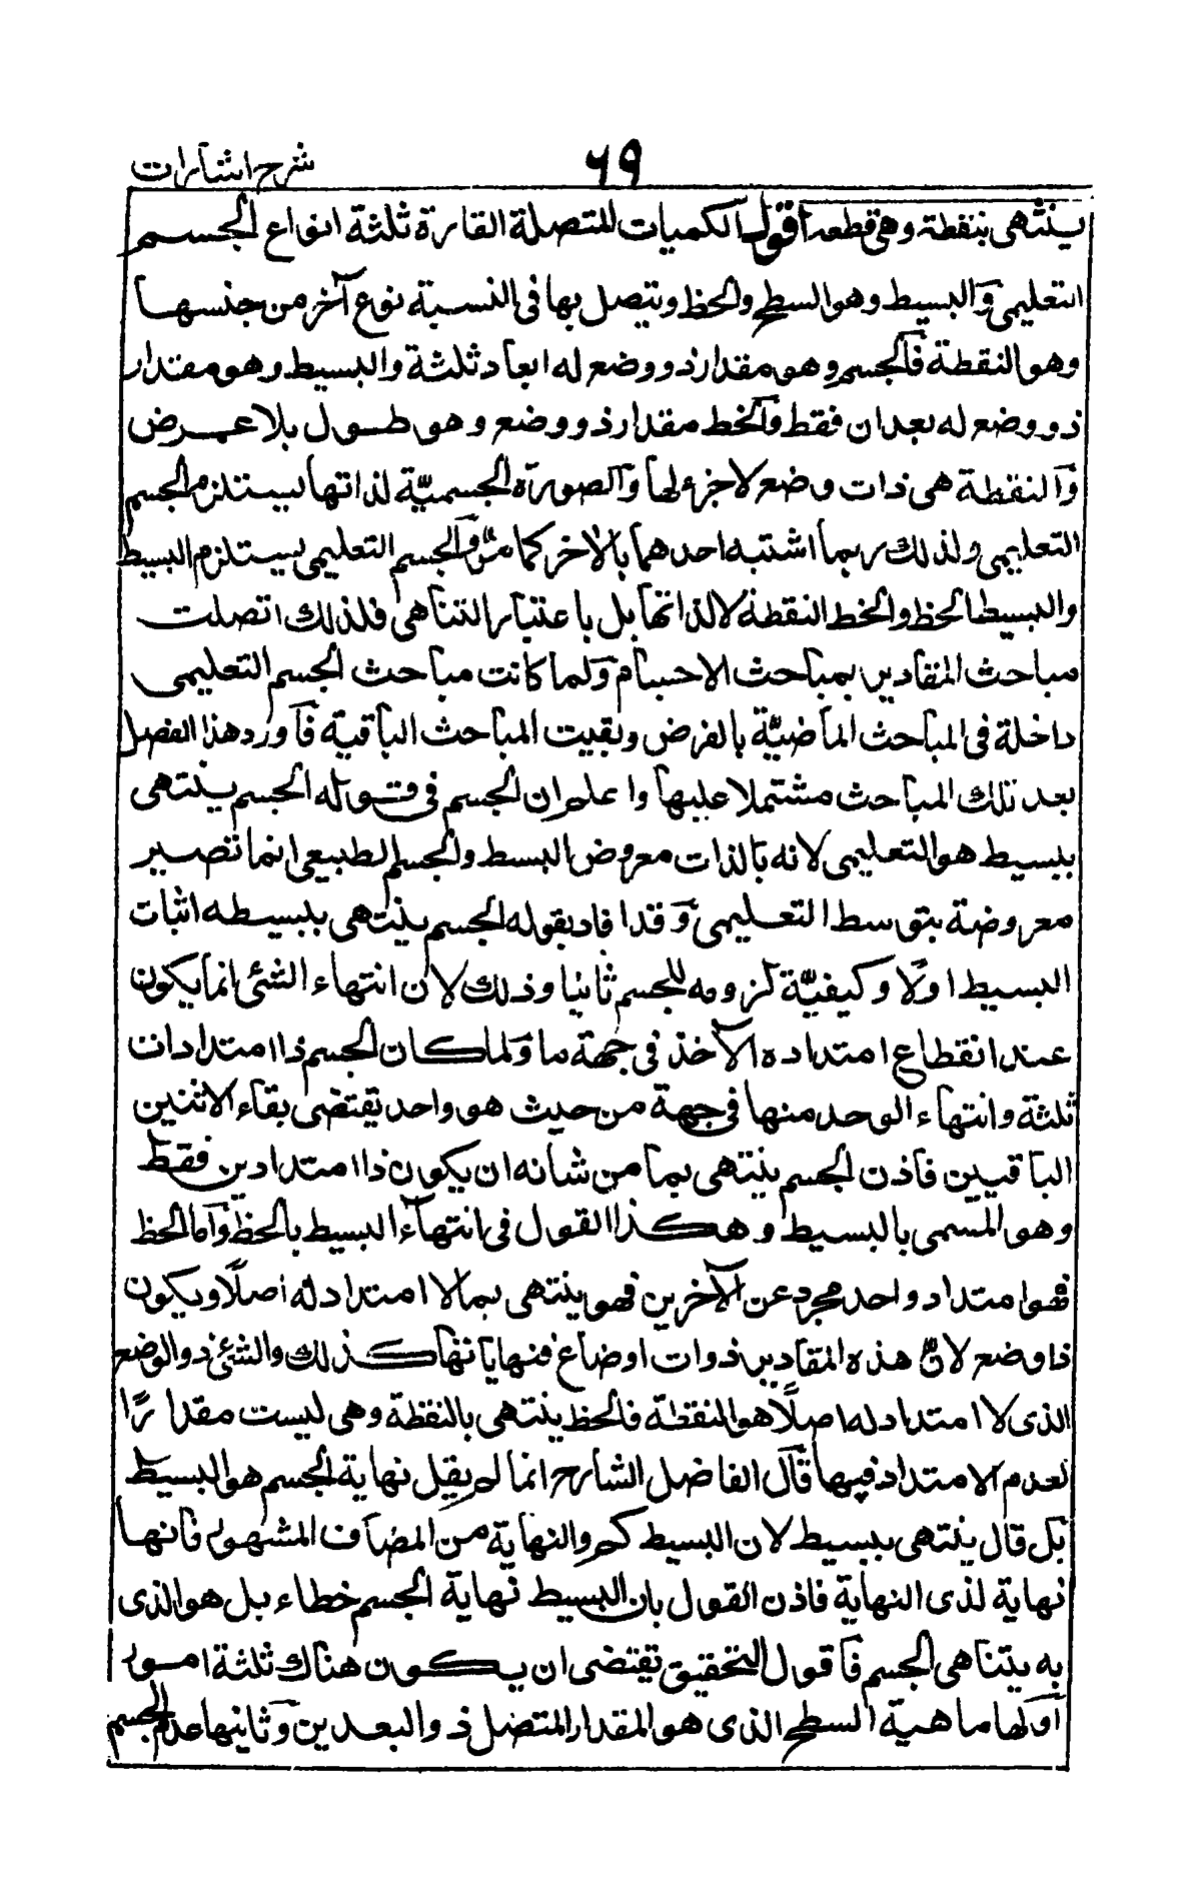 شرح اشارات
٦٩
ينتهى بنقطة وهى قطعه اقول الكميات المتصلة القارة ثلثة انواع الجسم
التعليمى والبسيط وهو السطح والخط ويتصل بها فى النسبة نوع آخر من جنسها
وهو النقطة فالجسم وهو مقدار ذو وضع له ابعاد ثلثة والبسيط وهو مقدار
ذو وضع له بعدان فقط والخط مقدار ذو وضع وهو طول بلا عرض
والنقطة هى ذات وضع لا جزء لها والصورة الجسميّة لذاتها يستلزم الجسم
التعليمى ولذلك ربما اشتبه احدهما بالاخر كما مرّ والجسم التعليمى يستلزم البسيط
والبسيط الخط والخط النقطة لا لذاتها بل باعتبار التناهى فلذلك اتصلت
مباحث المقادير بمباحث الاجسام ولما كانت مباحث الجسم التعليمى
داخلة فى المباحث الماضيّة بالفرض وبقيت المباحث الباقية فاورد هذا الفصل
بعد تلك المباحث مشتملا عليها واعلم ان الجسم فى قوله الجسم ينتهى
ببسيط هو التعليمى لانه بالذات معروض البسط والجسم الطبيعى انما تصير
معروضة بتوسط التعليمى وقد افاد بقوله الجسم ينتهى ببسيطه اثبات
البسيط اولا وكيفيّة لزومه للجسم ثانيا وذلك لان انتهاء الشئ انما يكون
عند انقطاع امتداده الآخذ فى جهة ما ولما كان الجسم ذا امتدادات
ثلثة وانتهاء الوحد منها فى جهة من حيث هو واحد يقتضى بقاء الاثنين
الباقيين فاذن الجسم ينتهى بما من شانه ان يكون ذا امتدادين فقط
وهو المسمى بالبسيط وهكذا القول فى انتهاء البسيط بالخط واما الخط
فهو امتداد واحد مجرد عن الآخرين فهو ينتهى بما لا امتداد له اصلًا ويكون
ذا وضع لانّ هذه المقادير ذوات اوضاع فنهاياتها كذلك والشئ ذو الوضع
الذى لا امتداد له اصلًا هو النقطة فالخط ينتهى بالنقطة وهى ليست مقدارًا
لعدم الامتداد فيها قال الفاضل الشارح انما لم يقل نهاية الجسم هو البسيط
بل قال ينتهى ببسيط لان البسيط كم والنهاية من المضاف المشهور فانها
نهاية لذى النهاية فاذن القول بان البسيط نهاية الجسم خطاء بل هو الذى
به يتناهى الجسم فاقول التحقيق يقتضى ان يكون هناك ثلثة امور
اولها ماهية السطح الذى هو المقدار المتصل ذو البعدين وثانيها عدم الجسم